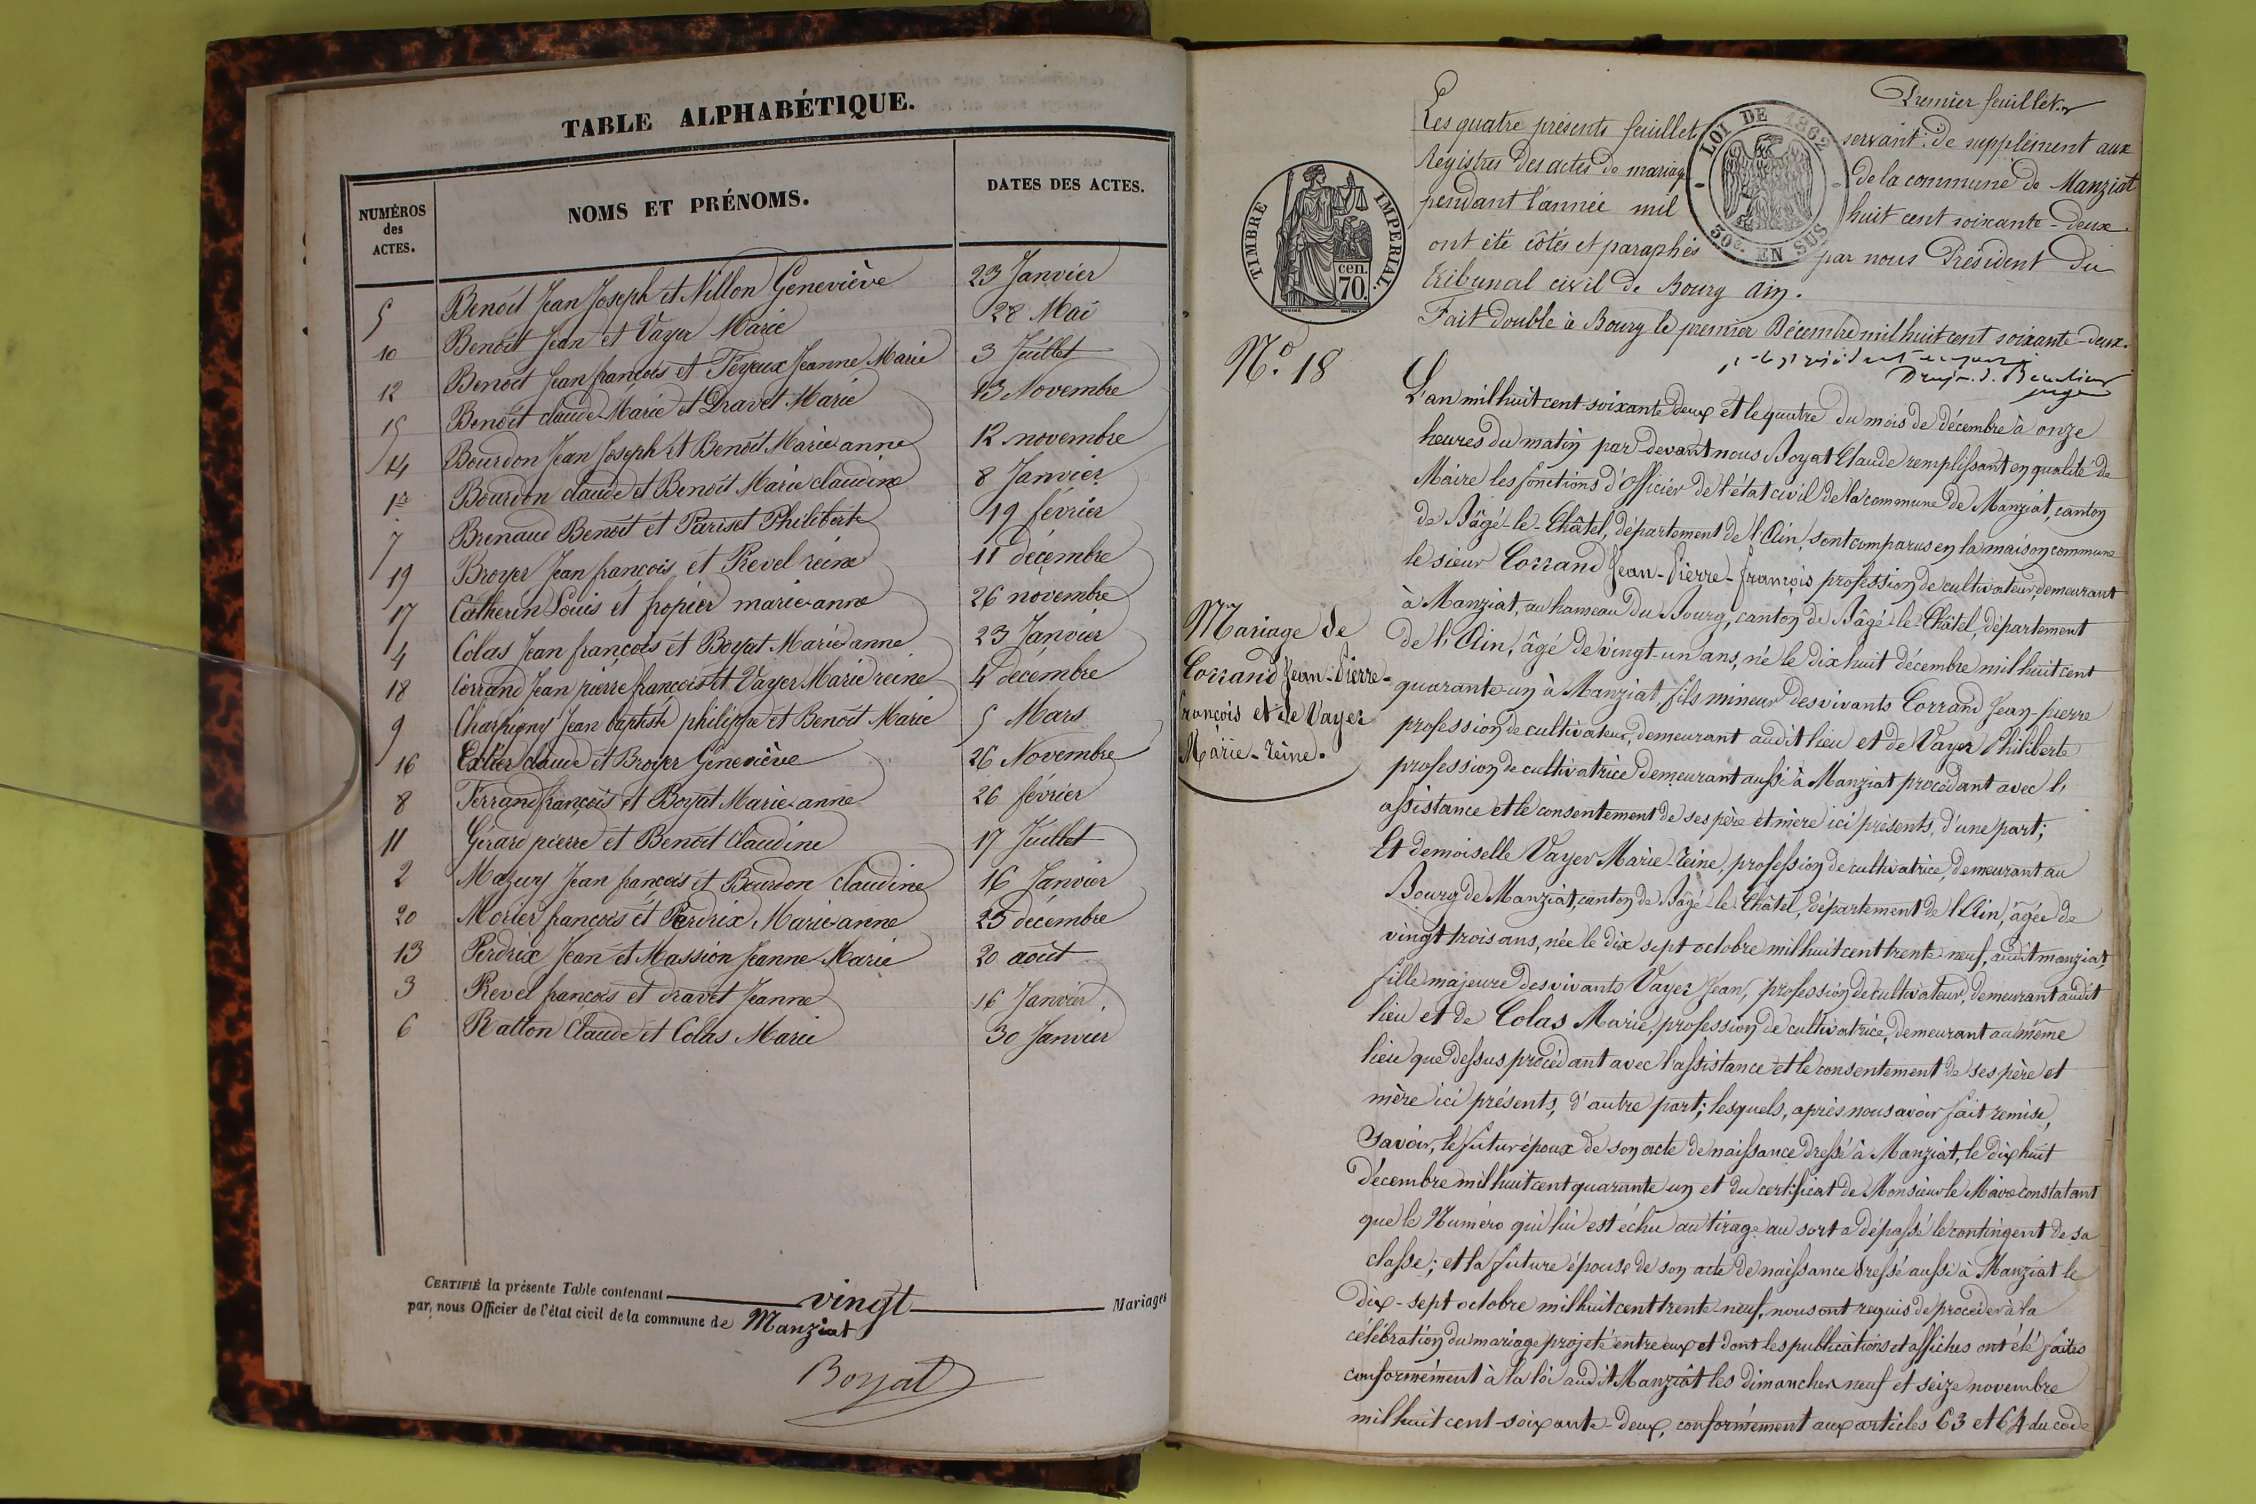 TABLE ALPHABÉTIQUE.
NUMÉROS des ACTES. NOMS ET PRÉNOMS. DATES DES ACTES.
5 Benoît Jean Joseph et Nillon Geneviève 23 Janvier
10 Benoît Jean et Vayer Marie 28 Mai
12 Benoît Jean françois et Feyeux Jeanne Marie 3 Juillet
15 Benoît claude Marie et Dravet Marie 13 Novembre
14 Bourdon Jean Joseph et Benoît Marie anne 12 novembre
1er Bourdon claude et Benoît Marie claudine 8 Janvier
7 Brenaud Benoît et Pariset Philiberte 19 février
19 Broyer Jean françois et Revel reine 11 décembre
17 Catherin Louis et fropier marie anne 26 novembre
4 Colas Jean françois et Boyat Marie anne 23 Janvier
18 Corrand Jean pierre françois et Vayer Marie reine 4 décembre
9 Charpigny Jean baptiste philippe et Benoît Marie 5 Mars
16 Extier claude et Broyer Geneviève 26 Novembre
8 Ferrand françois et Boyat Marie anne 26 février
11 Gérard pierre et Benoît Claudine 17 Juillet
2 Mazuy Jean françois et Bourdon claudine 16 Janvier
20 Morier françois et Perdrix Marie anne 23 décembre
13 Perdrix Jean et Massion Jeanne Marie 20 août
3 Revel françois et dravet Jeanne 16 Janvier
6 Ratton Claude et Colas Marie 30 Janvier
CERTIFIÉ la présente Table contenant vingt Mariages
par, nous Officier de l'état civil de la commune de Manziat
Boyat
Premier feuillet
Les quatre présents feuillets servant de supplément aux
registres des actes de mariage de la commune de Manziat
pendant l'année mil huit cent soixante-deux
ont été côtés et paraphés par nous Président du
tribunal civil de Bourg Ain.
Fait double à Bourg le premier Décembre mil huit cent soixante-deux.
juge
LOI DE 1862
50c. EN SUS
TIMBRE IMPERIAL.
cen. 70.
No. 18
Mariage de
Corrand Jean-Pierre-
françois et de Vayer
Marie-reine.
L'an mil huit cent soixante deux et le quatre du mois de décembre à onze
heures du matin par devant nous Boyat Claude remplissant en qualité de
Maire les fonctions d'Officier de l'état civil de la commune de Manziat, canton
de Bâgé-le-Châtel, département de l'Ain, sont comparus en la maison commune
le sieur Corrand Jean-Pierre-françois profession de cultivateur, demeurant
à Manziat, au hameau du Bourg, canton de Bâgé-le-Châtel, département
de l'Ain, âgé de vingt-un ans, né le dix huit décembre mil huit cent
quarante-un à Manziat fils mineur des vivants Corrand Jean-pierre
profession de cultivateur, demeurant audit lieu et de Vayer Philiberte
profession de cultivatrice demeurant aussi à Manziat procédant avec l'
assistance et le consentement de ses père et mère ici présents, d'une part;
Et demoiselle Vayer Marie-reine, profession de cultivatrice, demeurant au
Bourg de Manziat, canton de Bâgé-le-Châtel, département de l'Ain, âgée de
vingt trois ans, née le dix sept octobre mil huit cent trente-neuf, audit manziat,
fille majeure des vivants Vayer Jean, profession de cultivateur, demeurant audit
lieu et de Colas Marie, profession de cultivatrice, demeurant au même
lieu que dessus procédant avec l'assistance et le consentement de ses père et
mère ici présents, d'autre part; lesquels, après nous avoir fait remise,
savoir, le futur époux de son acte de naissance dressé à Manziat, le dix huit
décembre mil huit cent quarante un et du certificat de Monsieur le Maire constatant
que le Numéro qui lui est échu au tirage au sort a dépassé le contingent de sa
classe; et la future épouse de son acte de naissance dressé aussi à Manziat le
dix-sept octobre mil huit cent trente-neuf, nous ont requis de procéder à la
célébration du mariage projeté entre eux et dont les publications et affiches ont été faites
conformément à la loi audit Manziat les dimanches neuf et seize novembre
mil huit cent-soixante-deux, conformément aux articles 63 et 64 du code